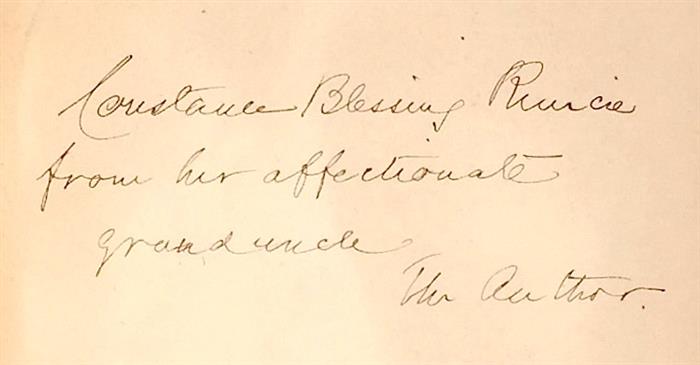 Constance Blessing Runcie
from her affectionate
granduncle
The Author.